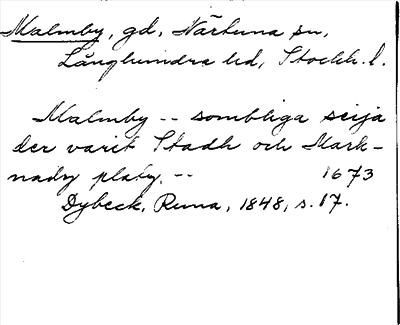 Malmby, gd, Närtuna sn,
Långhundra hd, Stockh. l.
Malmby -- sombliga seija
der varit Stadh och Mark-
nadz platz. -- 1673
Dybeck, Runa, 1848, s. 17.